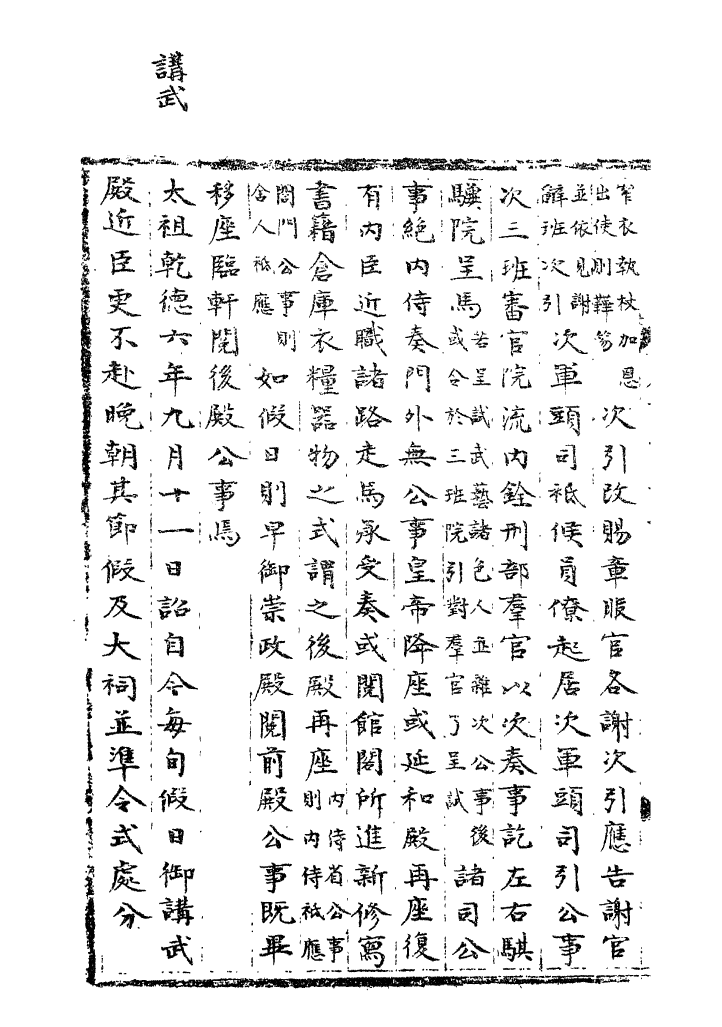 窄衣執杖加恩
出使則鞾笏
次引改賜章服官各謝次引應告謝官
並依見謝
辭班次引
次軍頭司祗候員僚起居次軍頭司引公事
次三班審官院流内銓刑部羣官以次奏事訖左右騏
驥院呈馬
若呈試武藝諸色人並雜次公事後
或令於三班院引對羣官了呈試
諸司公
事絶内侍奏門外無公事皇帝降座或延和殿再座復
有内臣近職諸路走馬承受奏或閱館閣所進新修寫
書籍倉庫衣糧器物之式謂之後殿再座
内侍省公事
則内侍祗應
閤門公事則
舍人祗應
如假日則早御崇政殿閱前殿公事既畢
移座臨軒閱後殿公事焉
講武
太祖乾德六年九月十一日詔自今每旬假日御講武
殿近臣更不赴晚朝其節假及大祠並準令式處分